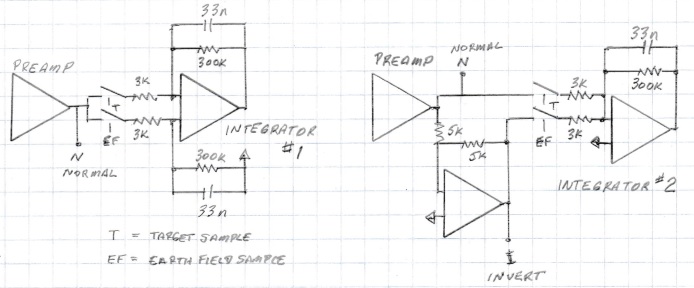 33n
300K
PREAMP
3K
T
3K
EF
N
NORMAL
INTEGRATOR
#1
300K
33n
T = TARGET SAMPLE
EF = EARTH FIELD SAMPLE
PREAMP
NORMAL
N
33n
300K
3K
T
3K
EF
5K
5K
INTEGRATOR #2
I
INVERT